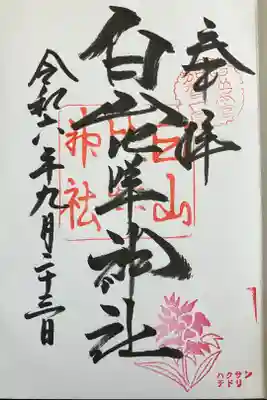 奉拝
白山比咩神社
白山
神社
令和六年九月二十三日
ハクサン
チドリ